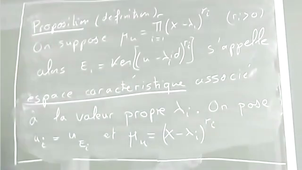 Proposition (définition)
On suppose μ_u = ∏_{i=1}^{r} (X-λ_i)^{r_i} (r_i>0)
alors E_i = Ker[(u-λ_i id)^{r_i}] s'appelle
espace caractéristique associé
à la valeur propre λ_i. On pose
u_i = u_{E_i} et μ_u = (X-λ_i)^{r_i}